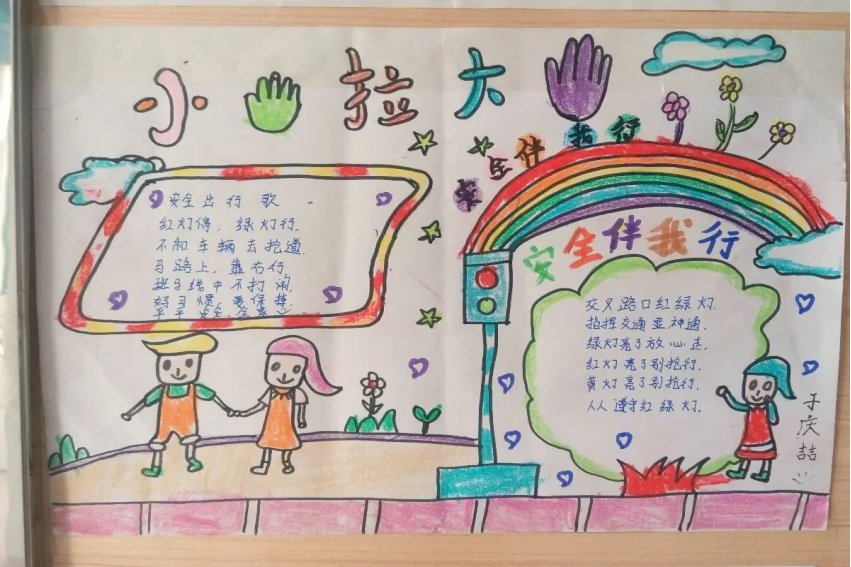 小 拉 大
安全伴我行
安全出行歌
红灯停，绿灯行。
不和车辆去抢道
马路上，靠右行，
斑马线中不打闹，
好习惯，要保持
平平安安
安全伴我行
交叉路口红绿灯.
指挥交通显神通.
绿灯亮了放心走，
红灯亮了别抢行.
黄灯亮了别抢行.
人人遵守红绿灯.
于庆喆